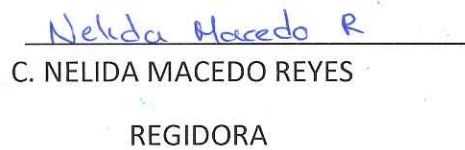 Nelida Macedo R
C. NELIDA MACEDO REYES
REGIDORA